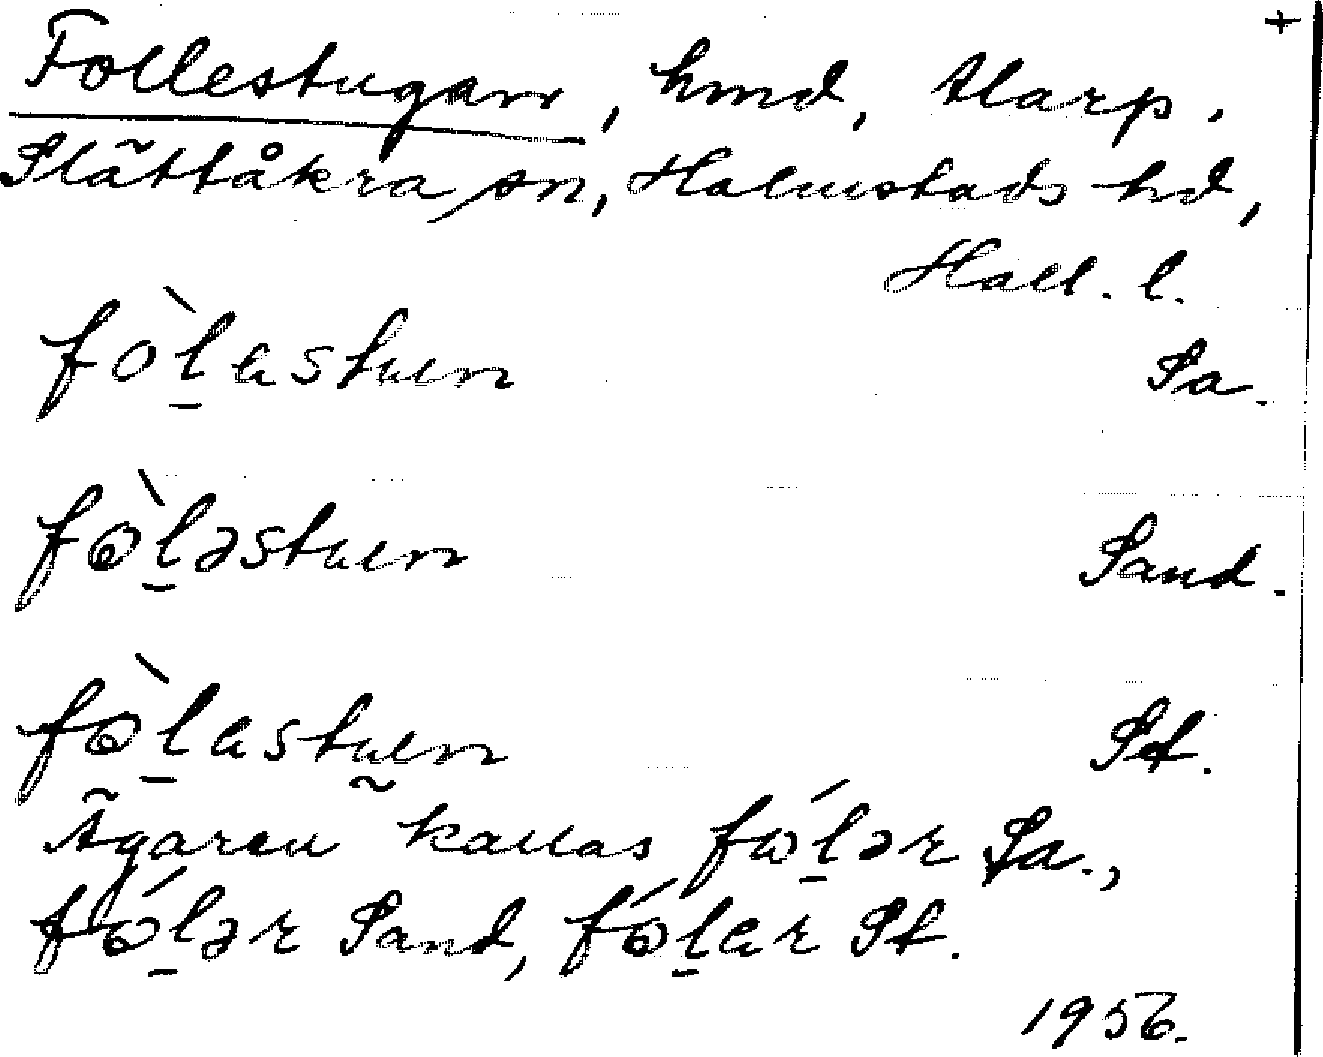 +
Follestugan, hmd, Harp.
Slättåkra sn, Halmstads hd,
Hall. l.
fòl̲astuen Sa.
fòl̲əstuen Sand.
fòl̲astuen St.
Ägaren kallas fól̲ər Sa.,
fól̲ər Sand, fól̲ar St.
1956.